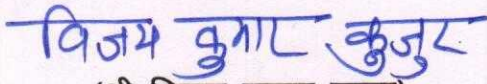 विजय कुमार कुजुर